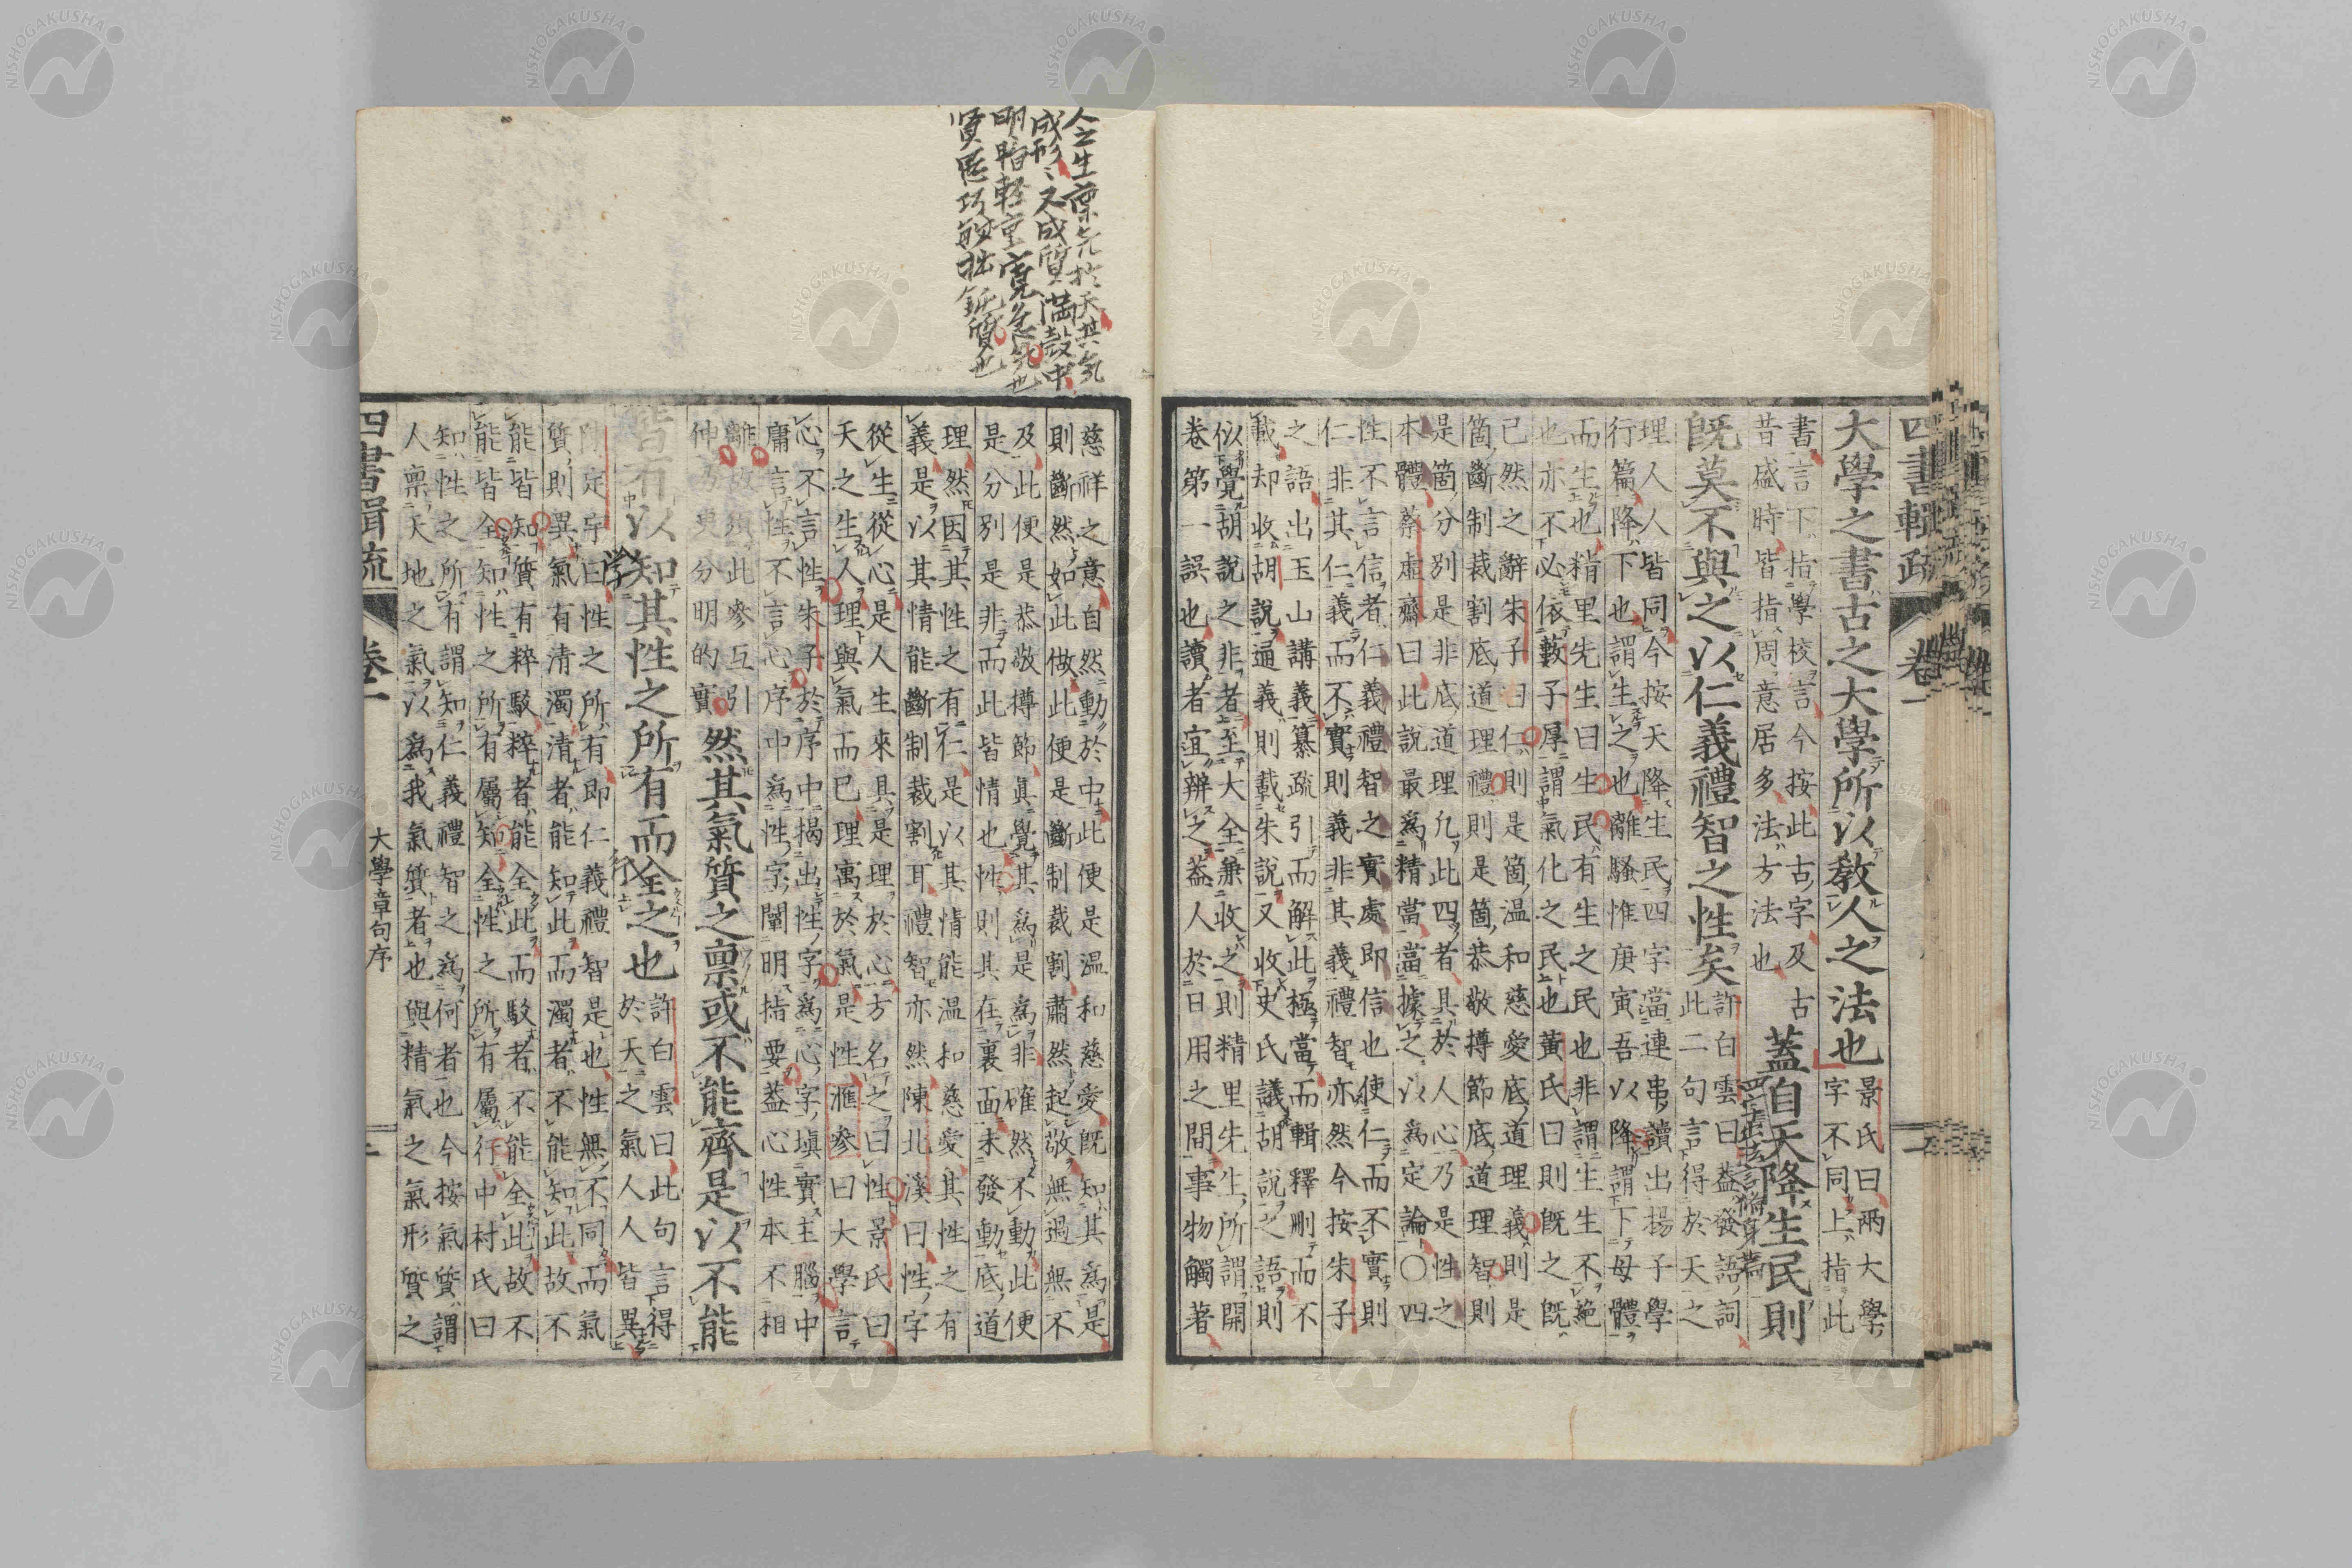 四書輯疏
卷一
大學之書古之大學所以教人之法也
景氏曰兩大學
字不同上指此
書言下指學校言今按此古字及古
昔盛時皆指周意居多法方法也
蓋自天降生民則
既莫不與之以仁義禮智之性矣
許白雲曰蓋發語詞
此二句言得於天之
理人人皆同今按天降生民四字當連串讀出揚子學
行篇降下也謂生之也離騷惟庚寅吾以降謂下母體
而生也精里先生曰生民有生之民也非謂生生不絶
也亦不必依藪子厚謂氣化之民也黃氏曰則既之既
已然之辭朱子曰仁則是箇溫和慈愛底道理義則是
箇斷制裁割底道理禮則是箇恭敬撙節底道理智則
是箇分別是非底道理凡此四者具於人心乃是性之
本體蔡虛齋曰此說最爲精當當據之以爲定論〇四
性不言信者仁義禮智之實處即信也使仁而不實則
仁非其仁義而不實則義非其義禮智亦然今按朱子
之語出玉山講義纂疏引而解此極當而輯釋刪而不
載却收胡說通義則載朱說又收史氏議胡說之語則
似覺胡說之非者至大全兼收之則精里先生所謂開
卷第一誤也讀者宜辨之蓋人於日用之間事物觸著
人之生稟氣於天其氣
成形〻又成質滿殼中
明暗軽重寛急氣也
賢愚巧敏拙鈍質也
慈祥之意自然動於中此便是溫和慈愛既知其爲是
則斷然如此做此便是斷制裁割肅然起敬無過無不
及此便是恭敬撙節眞覺其爲是爲非確然不動此便
是分別是非而此皆情也性則其在裏面未發動底道
理然因其性之有仁是以其情能溫和慈愛其性之有
義是以其情能斷制裁割耳禮智亦然陳北溪曰性字
從生從心是人生來具是理於心方名之曰性景氏曰
天之生人理與氣而已理寓於氣是性滙參曰大學言
心不言性朱子於序中揭出性字爲心字塡實主腦中
庸言性不言心序中爲性字闡明指要蓋心性本不相
離故須此參互引
伸乃見分明的實
然其氣質之稟或不能齊是以不能
皆有以知其性之所有而全之也
許白雲曰此句言得
於天之氣人人皆異
陳定宇曰性之所有即仁義禮智是也性無不同而氣
質則異氣有清濁清者能知此而濁者不能知此故不
能皆知質有粹駁粹者能全此而駁者不能全此故不
能皆全知性之所有屬知全性之所有屬行中村氏曰
知性之所有謂知仁義禮智之爲何者也今按氣質謂
人禀天地之氣以爲我氣質者也與精氣之氣形質之
四書輯疏
卷一
大學章句序
二